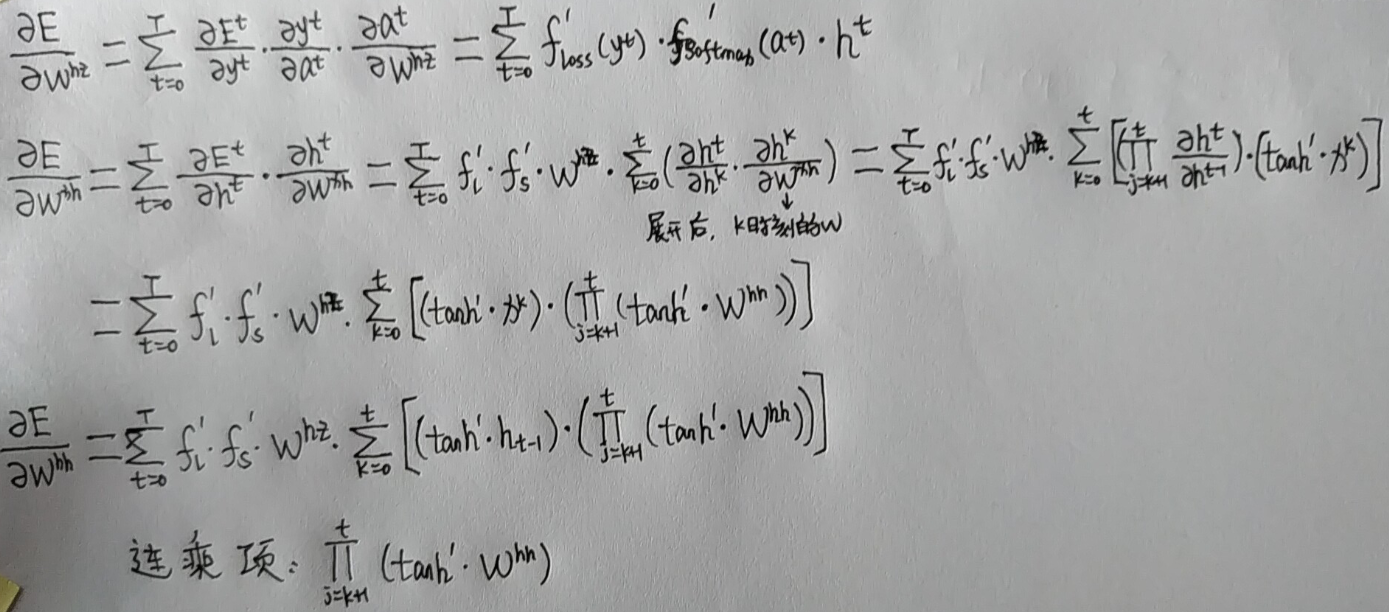 ∂E/∂W^{hz} = Σ_{t=0}^{T} ∂E^t/∂y^t · ∂y^t/∂a^t · ∂a^t/∂W^{hz} = Σ_{t=0}^{T} f'_{loss}(y^t) · f'_{softmax}(a^t) · h^t
∂E/∂W^{xh} = Σ_{t=0}^{T} ∂E^t/∂h^t · ∂h^t/∂W^{xh} = Σ_{t=0}^{T} f_l' · f_s' · W^{hz} · Σ_{k=0}^{t} (∂h^t/∂h^k · ∂h^k/∂W^{xh}) = Σ_{t=0}^{T} f_l' · f_s' · W^{hz} · Σ_{k=0}^{t} [(Π_{j=k+1}^{t} ∂h^t/∂h^{t-1}) · (tanh' · x^k)]
↓
展开后, k时刻的W
= Σ_{t=0}^{T} f_l' · f_s' · W^{hz} · Σ_{k=0}^{t} [(tanh' · x^k) · (Π_{j=k+1}^{t} (tanh' · W^{hh}))]
∂E/∂W^{hh} = Σ_{t=0}^{T} f_l' · f_s' · W^{hz} · Σ_{k=0}^{t} [(tanh' · h_{t-1}) · (Π_{j=k+1}^{t} (tanh' · W^{hh}))]
连乘项: Π_{j=k+1}^{t} (tanh' · W^{hh})